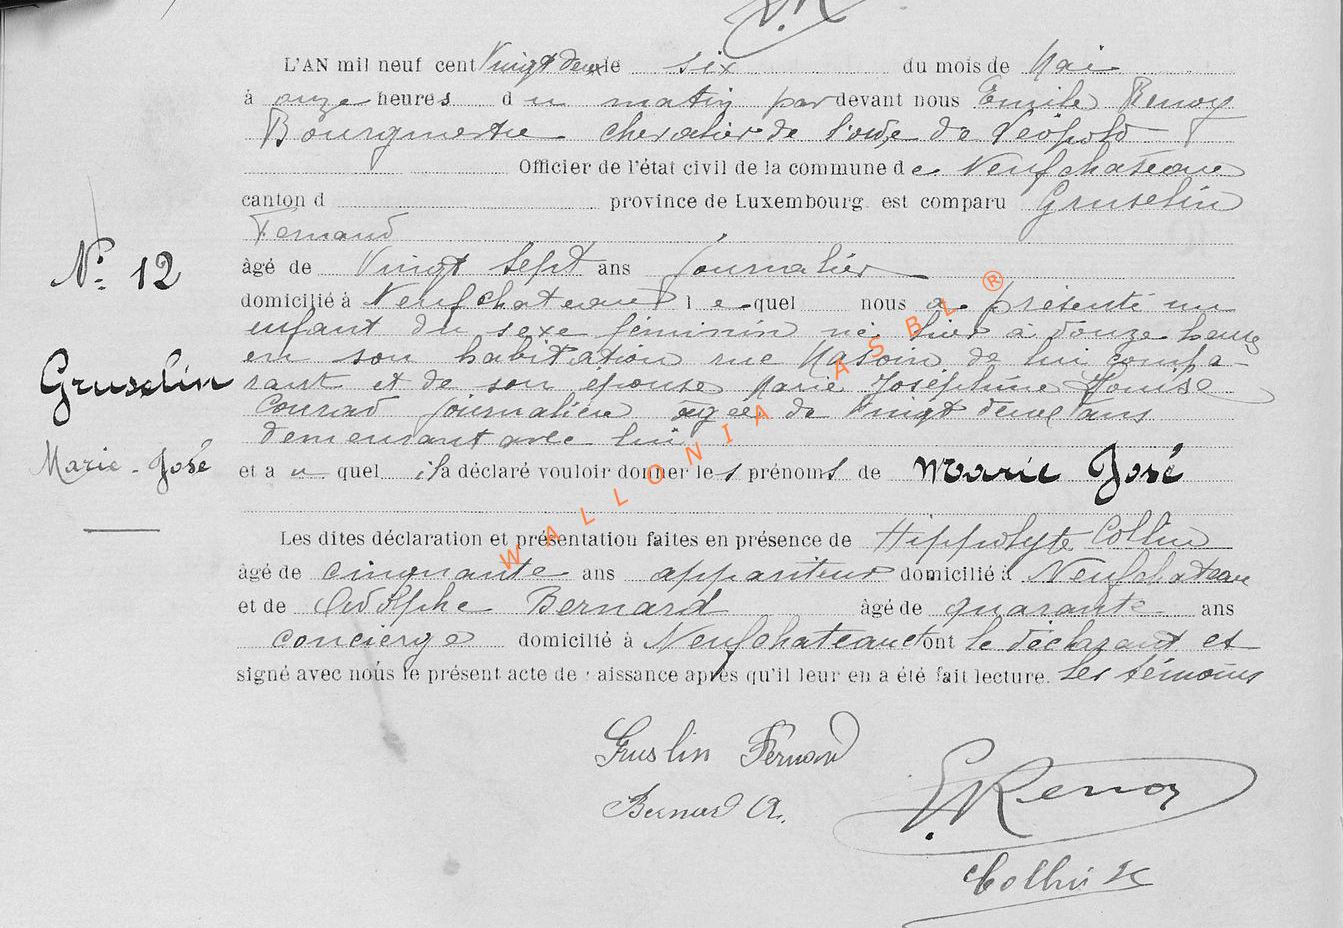 L'AN mil neuf cent Vingt deux le six du mois de Mai
à onze heures du matin par devant nous Emile Renoy
Bourgmestre chevalier de l'ordre de Léopold
Officier de l'état civil de la commune de Neufchateau
canton d province de Luxembourg est comparu Gruselin
Fernand
N° 12
âgé de Vingt Sept ans journalier
domicilié à Neufchateau lequel nous a présenté un
enfant du sexe féminin né hier à douze heures
en son habitation rue de lui compa-
Gruselin
rant et de son épouse Marie Joséphine Louise
Conrad journalière agée de Vingt deux ans
demeurant avec lui
Marie-José
et auquel il a déclaré vouloir donner les prénoms de Marie José
Les dites déclaration et présentation faites en présence de Hippolyte Collin
âgé de cinquante ans appariteur domicilié à Neufchateau
et de Adolphe Bernard âgé de quarante ans
concierge domicilié à Neufchateau et ont le déclarant et
signé avec nous le présent acte de naissance après qu'il leur en a été fait lecture. les témoins
Gruslin Fernand
Bernard A.
E. Renoy
Collin
WALLONIA ASBL ®